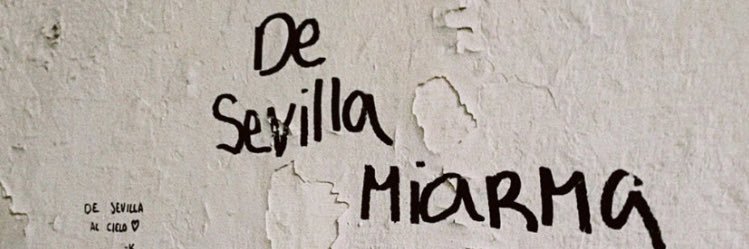 De
Sevilla
MiaRMa
DE SEVILLA
AL CIELO ♡
-K